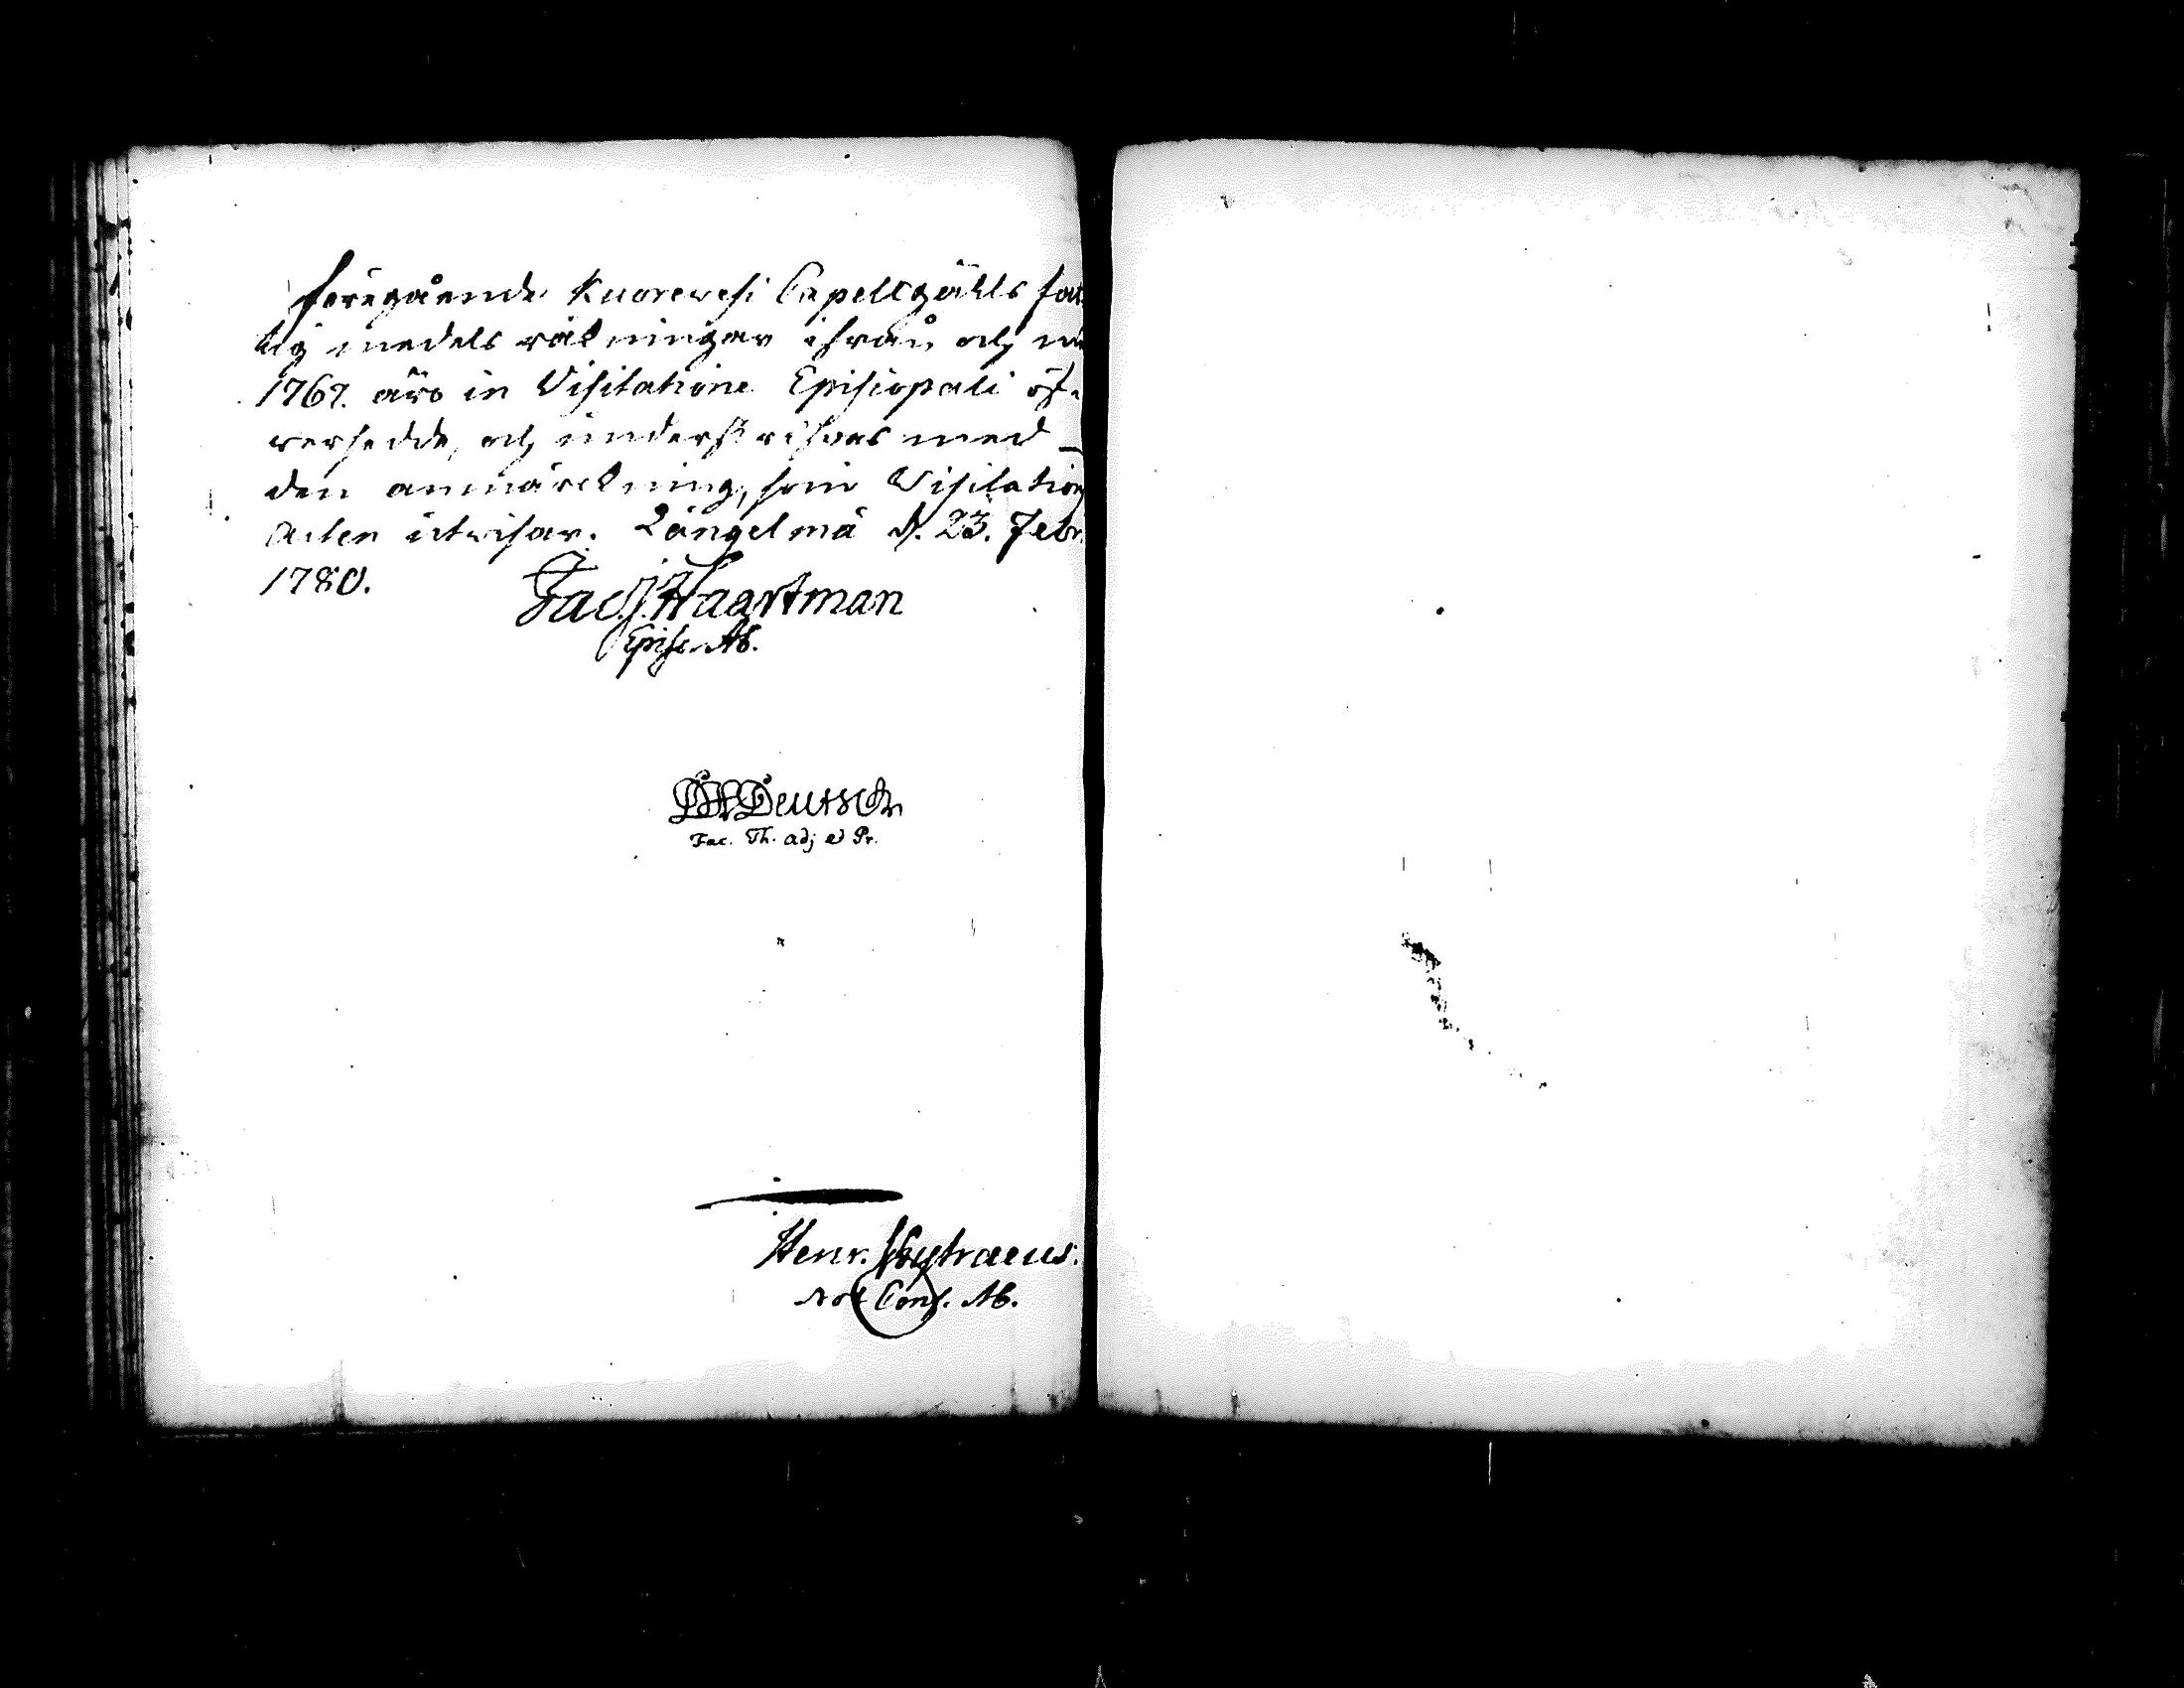 Föregående Kuorewesi Capellgälls fat-
tig medels räkningar ifrån och med
1767. äro in Visitatione Episcopali öf-
wersedde, och underskrifvas med
den anmärckning, som Visitations
Acten utwisar. Längelmä d. 23. Febr.
1780.
Jac. J. Haartman
Episc. Ab.
Deutsch
Fac. Th. Adj et Pr.
Henr. Chytraeus.
Not Cons. Ab.